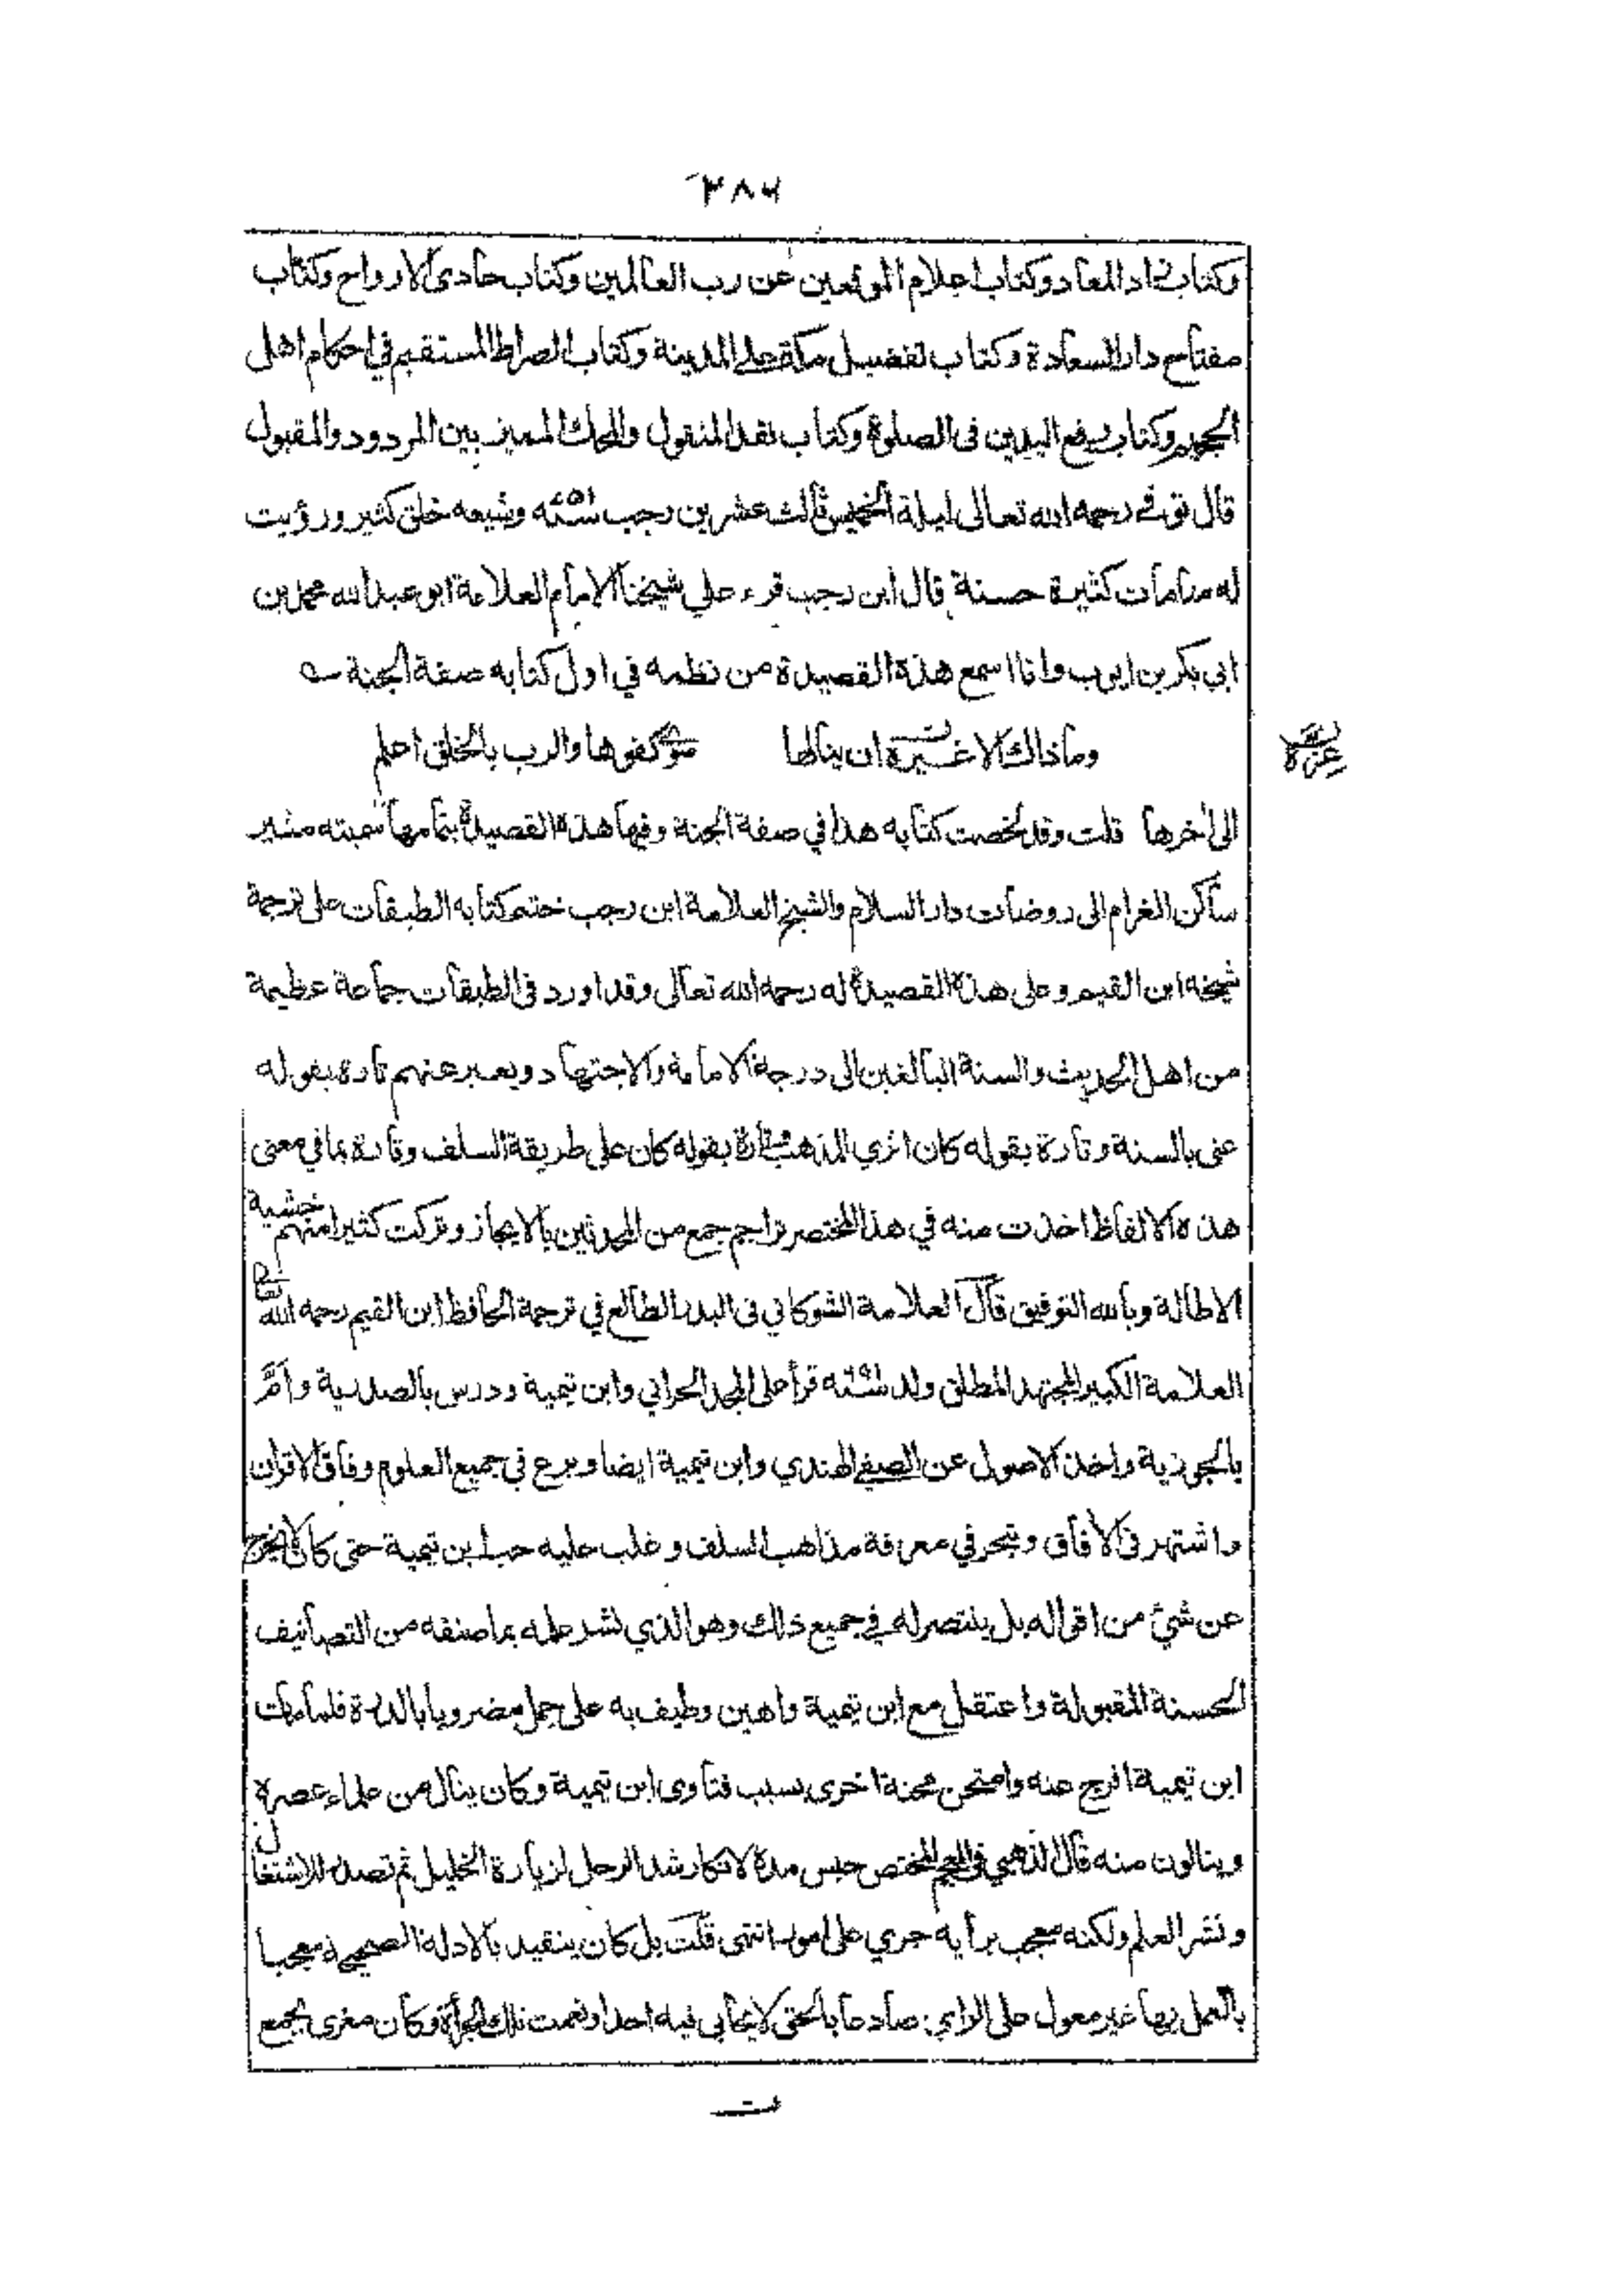 ٢٨٦
وكتاب زاد المعاد وكتاب اعلام الموقعين عن رب العالمين وكتاب حادى الارواح وكتاب
مفتاح دار السعادة وكتاب تفضيل مكة على المدينة وكتاب الصراط المستقيم في احكام اهل
الجحيم وكتاب رفع اليدين فى الصلوة وكتاب نقد المنقول والمحك المميز بين المردود والمقبول
قال توفي رحمه الله تعالى ليلة الخميس ثالث عشرين رجب ٧٥١ سنه وشيعه خلق كثير ورؤيت
له منامات كثيرة حسنة قال ابن رجب قرء علي شيخنا الامام العلامة ابو عبد الله محمد بن
ابي بكر بن ايوب وانا اسمع هذه القصيدة من نظمه في اول كتابه صفة الجنة
وما ذاك الا غيرة ان ينالها سوى كفوها والرب بالخلق اعلم
الى اخرها قلت وقد لخصت كتابه هذا في صفة الجنة وفيها هذه القصيدة بتمامها سميته مثير
ساكن الغرام الى روضات دار السلام والشيخ العلامة ابن رجب ختم كتابه الطبقات على ترجمة
شيخه ابن القيم وعلى هذه القصيدة له رحمه الله تعالى وقد اورد فى الطبقات جماعة عظيمة
من اهل الحديث والسنة البالغين الى درجة الامامة والاجتهاد ويعبر عنهم تارة بقوله
عنى بالسنة وتارة بقوله كان اثري المذهب وتارة بقوله كان على طريقة السلف وتارة بما في معنى
هذه الالفاظ اخذت منه في هذا المختصر تراجم جمع من المحدثين بالايجاز وتركت كثيرا منهم خشية
الاطالة وبالله التوفيق قال العلامة الشوكاني فى البدر الطالع في ترجمة الحافظ ابن القيم رحمه الله تعالى
العلامة الكبير المجتهد المطلق ولد ٦٩١ سنه قرأ على المجد الحراني وابن تيمية ودرس بالصدرية وأمّ
بالجوزية واخذ الاصول عن الصفي الهندي وابن تيمية ايضا وبرع في جميع العلوم وفاق الاقران
واشتهر فى الافاق وتبحر في معرفة مذاهب السلف وغلب عليه حب ابن تيمية حتى كان لا يخرج
عن شيئ من اقواله بل ينتصر له في جميع ذلك وهو الذي نشر علمه بما صنفه من التصانيف
الحسنة المقبولة واعتقل مع ابن تيمية واهين وطيف به على جمل مضروبا بالدرة فلما مات
ابن تيمية افرج عنه وامتحن محنة اخرى بسبب فتاوى ابن تيمية وكان ينال من علماء عصره
وينالون منه قال الذهبي في المعجم المختص حبس مدة لانكار شد الرحل لزيارة الخليل ثم تصدر للاشتغال
ونشر العلم ولكنه معجب برأيه جري على امور انتهى قلت بل كان يتقيد بالادلة الصحيحة معجبا
بالعمل بها غير معول على الراي صادعا بالحق لا يحابي فيه احدا ونعمت تلك الجرأة وكان مغرى بجمع